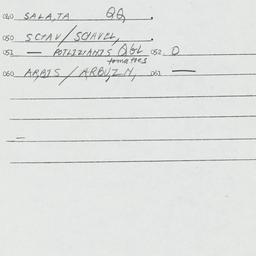 040 SALATA QQ.
050 SCHAV/SCHAVEL,
051 — POTLIZHANIS Q&L 052 O
tomatoes
060 ARBIS/ARBUZN, 061 —